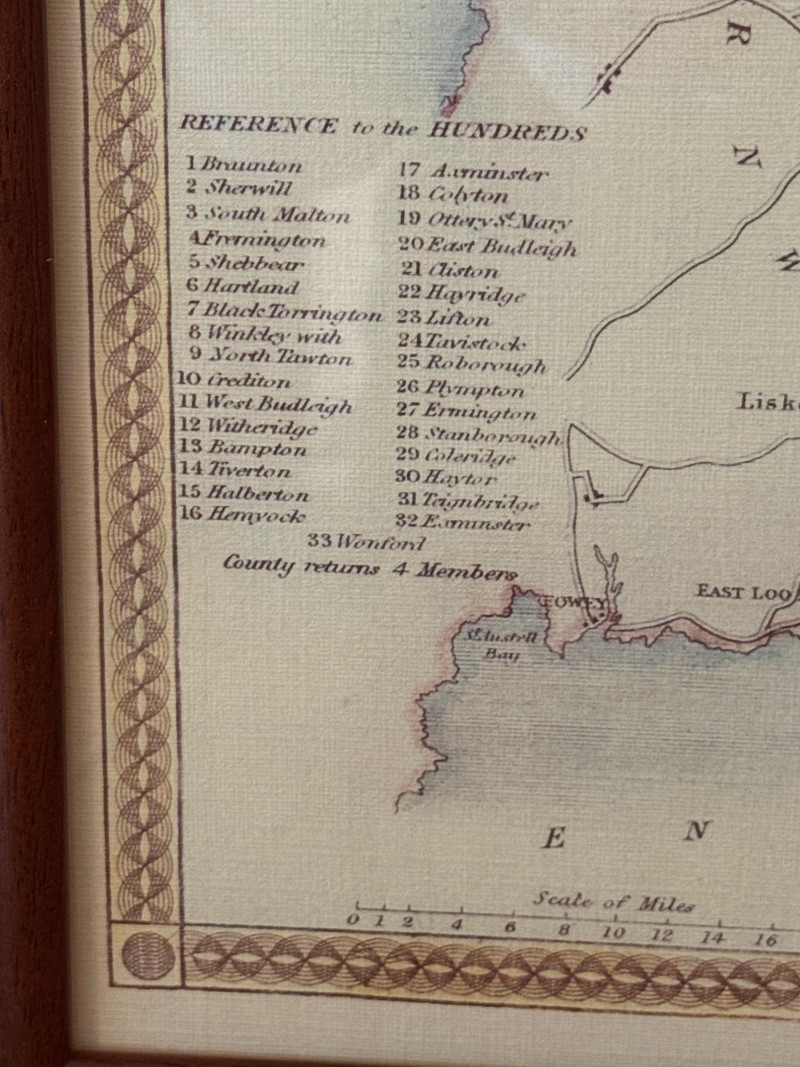 R
N
W
REFERENCE to the HUNDREDS
1 Braunton
2 Sherwill
3 South Malton
4 Fremington
5 Shebbear
6 Hartland
7 Black Torrington
8 Winkley with
9 North Tawton
10 Crediton
11 West Budleigh
12 Witheridge
13 Bampton
14 Tiverton
15 Halberton
16 Hemyock
17 Axminster
18 Colyton
19 Ottery St. Mary
20 East Budleigh
21 Cliston
22 Hayridge
23 Lifton
24 Tavistock
25 Roborough
26 Plympton
27 Ermington
28 Stanborough
29 Coleridge
30 Haytor
31 Teignbridge
32 Exminster
33 Wonford
County returns 4 Members
Liske
FOWEY
EAST LOO
St. Austell
Bay
E N
Scale of Miles
0 1 2 4 6 8 10 12 14 16